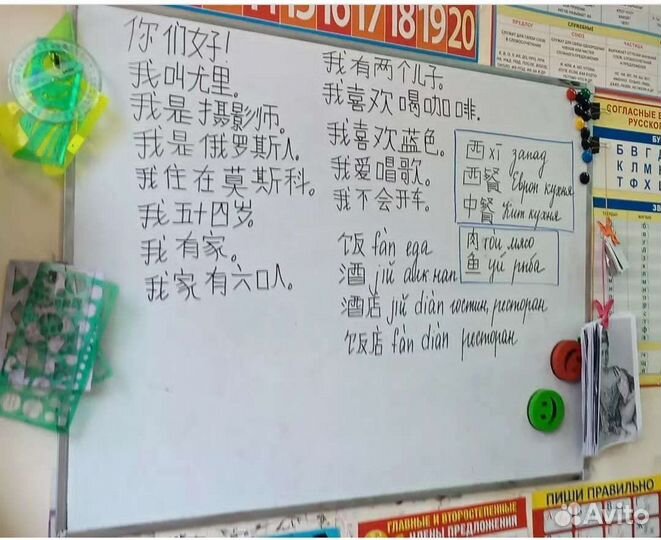 15 16 17 18 19 20
你们好!
我叫尤里。
我是摄影师。
我是俄罗斯人。
我住在莫斯科。
我五十四岁。
我有家。
我家有六口人。
我有两个儿子。
我喜欢喝咖啡.
我喜欢蓝色。
我爱唱歌。
我不会开车。
西 xī запад
西餐 Европ кухня
中餐 Кит кухня
肉 ròu мясо
鱼 yú рыба
饭 fàn еда
酒 jiǔ алк нап
酒店 jiǔ diàn гостин, ресторан
饭店 fàn diàn ресторан
ПРЕДЛОГ
СЛУЖЕБНЫЕ
СОЮЗ
ЧАСТИЦА
СОГЛАСНЫЕ
РУССКО
Б В Г
К Л М
Т Ф Х
ГЛАВНЫЕ И ВТОРОСТЕПЕННЫЕ
ЧЛЕНЫ ПРЕДЛОЖЕНИЯ
ПИШИ ПРАВИЛЬНО
Avito